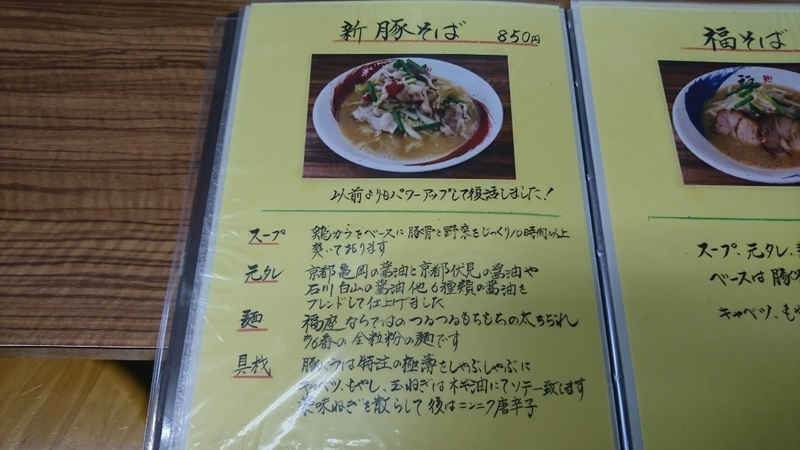 新豚そば 850円
以前よりもパワーアップして復活しました!
スープ 鶏ガラをベースに豚骨と野菜をじっくり10時間以上
焚いております
元タレ 京都亀岡の醤油と京都伏見の醤油や
石川白山の醤油他6種類の醤油を
ブレンドして仕上げました
麺 福座ならではのつるつるもちもちの太ちぢれ
#16番の全粒粉の麺です
具材 豚バラは特注の極薄をしゃぶしゃぶに
キャベツ、もやし、玉ねぎはネギ油にてソテー致します
薬味ねぎを散らして後はニンニク唐辛子
福そば
スープ、元タレ、
ベースは豚
キャベツ、もや